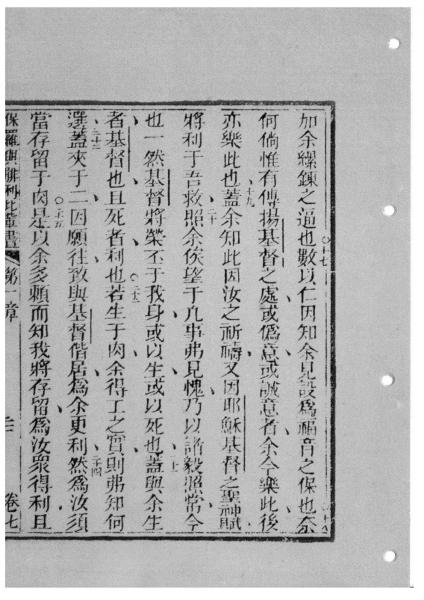 加余縲鍊之逼也數以仁因知余見設爲福音之保也奈
十七
十八
何倘惟有傳揚基督之處或僞意或誠意者余今樂此後
亦樂此也蓋余知此因汝之祈禱又因耶穌基督之聖神賦
十九
將利于吾救照余俟望于凡事弗見愧乃以諸毅照常今
二十
也一然基督將榮丕于我身或以生或以死也蓋與余生
廿一
者基督也且死者利也若生于肉余得工之實則弗知何
廿二
選蓋夾于二因願往致與基督偕居爲余更利然爲汝須
廿三
廿四
當存留于肉是以余多賴而知我將存留爲汝衆得利且
廿五
保羅與腓利比輩書 第一章 三 卷七